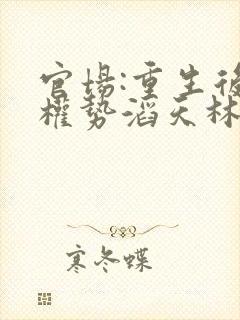 官场:重生後
權势滔天林
寒冬蝶